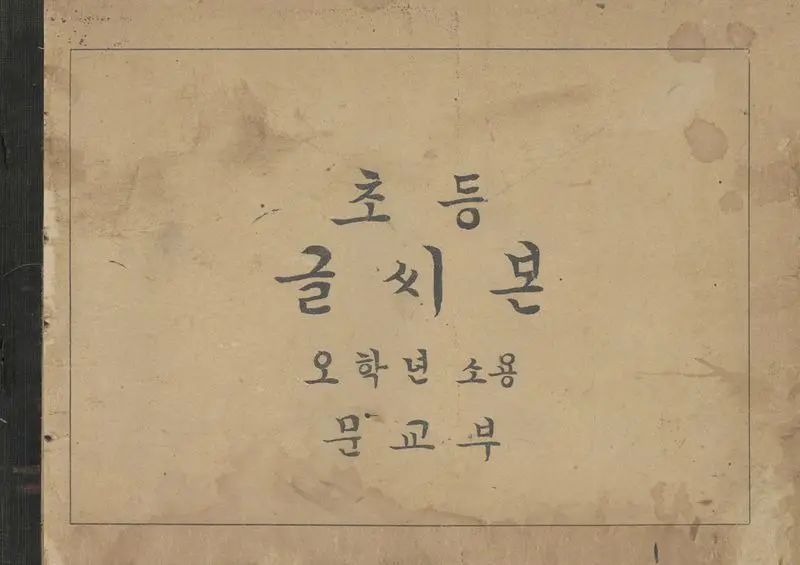 초등
글씨본
오학년 소용
문교부